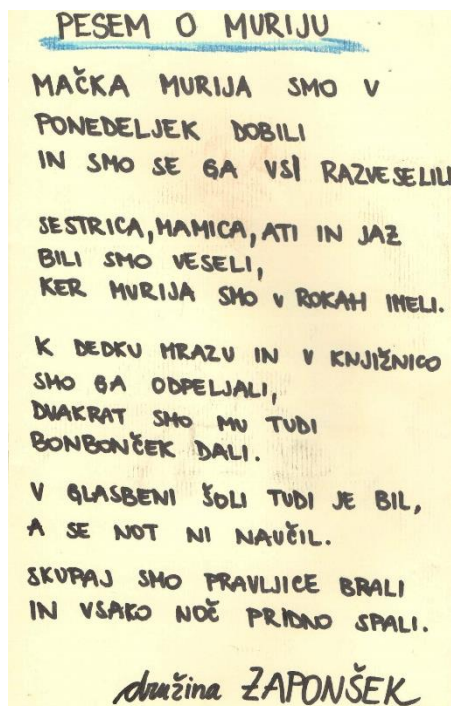 PESEM O MURIJU
MAČKA MURIJA SMO V
PONEDELJEK DOBILI
IN SMO SE GA VSI RAZVESELILI
SESTRICA, MAMICA, ATI IN JAZ
BILI SMO VESELI,
KER MURIJA SMO V ROKAH IMELI.
K DEDKU MRAZU IN V KNJIŽNICO
SMO GA ODPELJALI,
DVAKRAT SMO MU TUDI
BONBONČEK DALI.
V GLASBENI ŠOLI TUDI JE BIL,
A SE NOT NI NAUČIL.
SKUPAJ SMO PRAVLJICE BRALI
IN VSAKO NOČ PRIDNO SPALI.
družina ZAPONŠEK